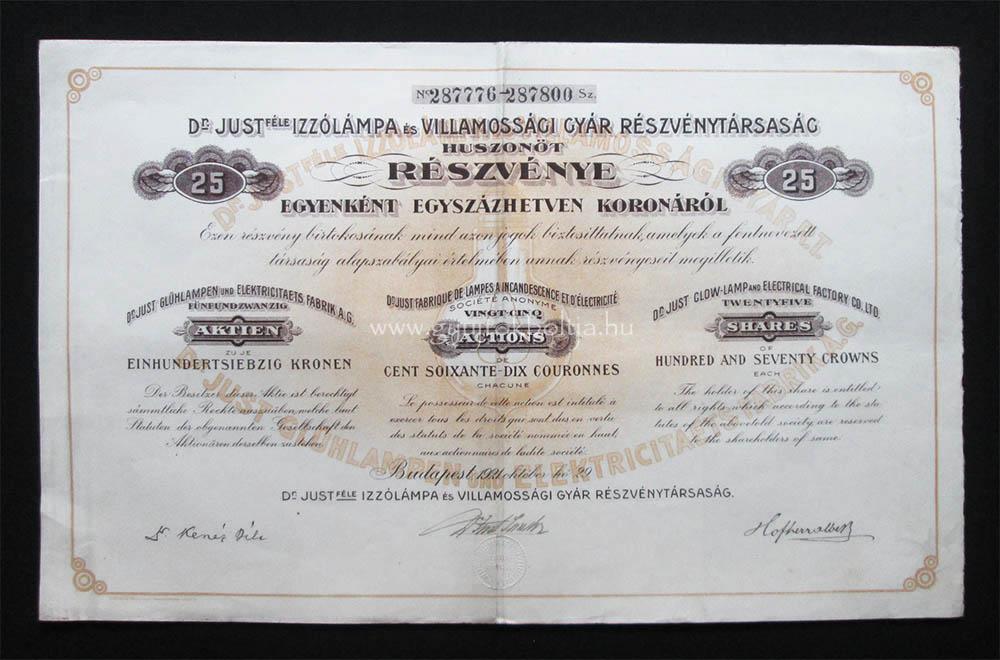 No 287776-287800 Sz.
Dr. JUST FÉLE IZZÓLÁMPA ÉS VILLAMOSSÁGI GYÁR RÉSZVÉNYTÁRSASÁG
HUSZONÖT
RÉSZVÉNYE
25
25
EGYENKÉNT EGYSZÁZHETVEN KORONÁRÓL
Ezen részvény birtokosának mind azon jogok biztosíttatnak, amelyek a fentnevezett
társaság alapszabályai értelmében annak részvényeseit megilletik.
Dr. JUST GLÜHLAMPEN UND ELEKTRICITAETS FABRIK A.G.
FÜNFUNDZWANZIG
AKTIEN
ZU JE
EINHUNDERTSIEBZIG KRONEN
Der Besitzer dieser Aktie ist berechtigt
sämmtliche Rechte auszuüben, welche laut
Statuten der obgenannten Gesellschaft den
Aktionären derselben zustehen.
Dr. JUST FABRIQUE DE LAMPES A INCANDESCENCE ET D'ÉLECTRICITÉ
SOCIÉTÉ ANONYME
VINGT-CINQ
ACTIONS
DE
CENT SOIXANTE-DIX COURONNES
CHACUNE
Le possesseur de cette action est intitulé à
exercer tous les droits que sont dus en vertu
des statuts de la société nommée en haut
aux actionnaires de ladite société.
Dr. JUST GLOW-LAMP AND ELECTRICAL FACTORY CO. LTD.
TWENTYFIVE
SHARES
OF
HUNDRED AND SEVENTY CROWNS
EACH
The holder of this share is entitled
to all rights which according to the sta-
tutes of the abovetold society are reserved
to the shareholders of same.
Budapest, 1921 október hó 29
Dr. JUST FÉLE IZZÓLÁMPA ÉS VILLAMOSSÁGI GYÁR RÉSZVÉNYTÁRSASÁG.